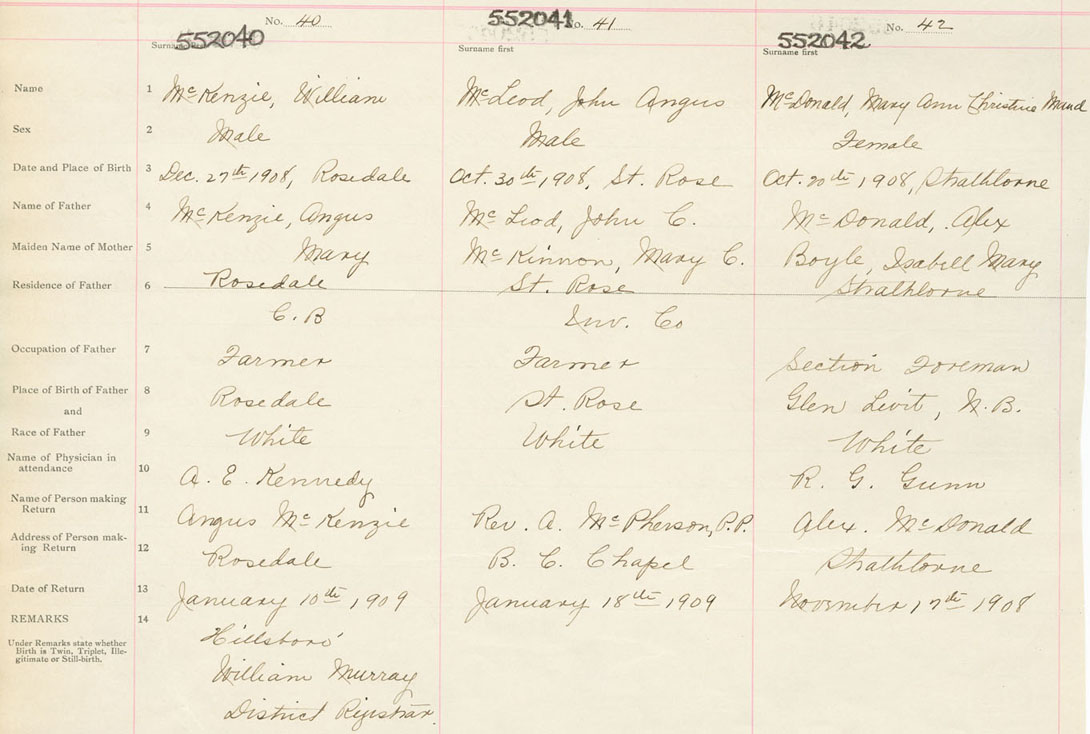 No. 40
552040
Surname first
552041
No. 41
Surname first
No. 42
552042
Surname first
Name 1 McKenzie, William McLeod, John Angus McDonald, Mary Ann Christine Maud
Sex 2 Male Male Female
Date and Place of Birth 3 Dec. 27th 1908, Rosedale Oct. 30th, 1908, St. Rose Oct. 20th 1908, Strathlorne
Name of Father 4 McKenzie, Angus McLeod, John C. McDonald, Alex
Maiden Name of Mother 5 Mary McKinnon, Mary C. Boyle, Isabell Mary
Residence of Father 6 Rosedale St. Rose Strathlorne
C. B Inv. Co
Occupation of Father 7 Farmer Farmer Section Foreman
Place of Birth of Father 8 Rosedale St. Rose Glen Livit, N.B.
and
Race of Father 9 White White White
Name of Physician in
attendance 10 A. E. Kennedy R. G. Gunn
Name of Person making
Return 11 Angus McKenzie Rev. A. McPherson, P.P. Alex. McDonald
Address of Person mak-
ing Return 12 Rosedale B. C. Chapel Strathlorne
Date of Return 13 January 10th 1909 January 18th 1909 November 17th 1908
REMARKS 14 Hillsboro'
Under Remarks state whether
Birth is Twin, Triplet, Ille-
gitimate or Still-birth.
William Murray
District Registrar.